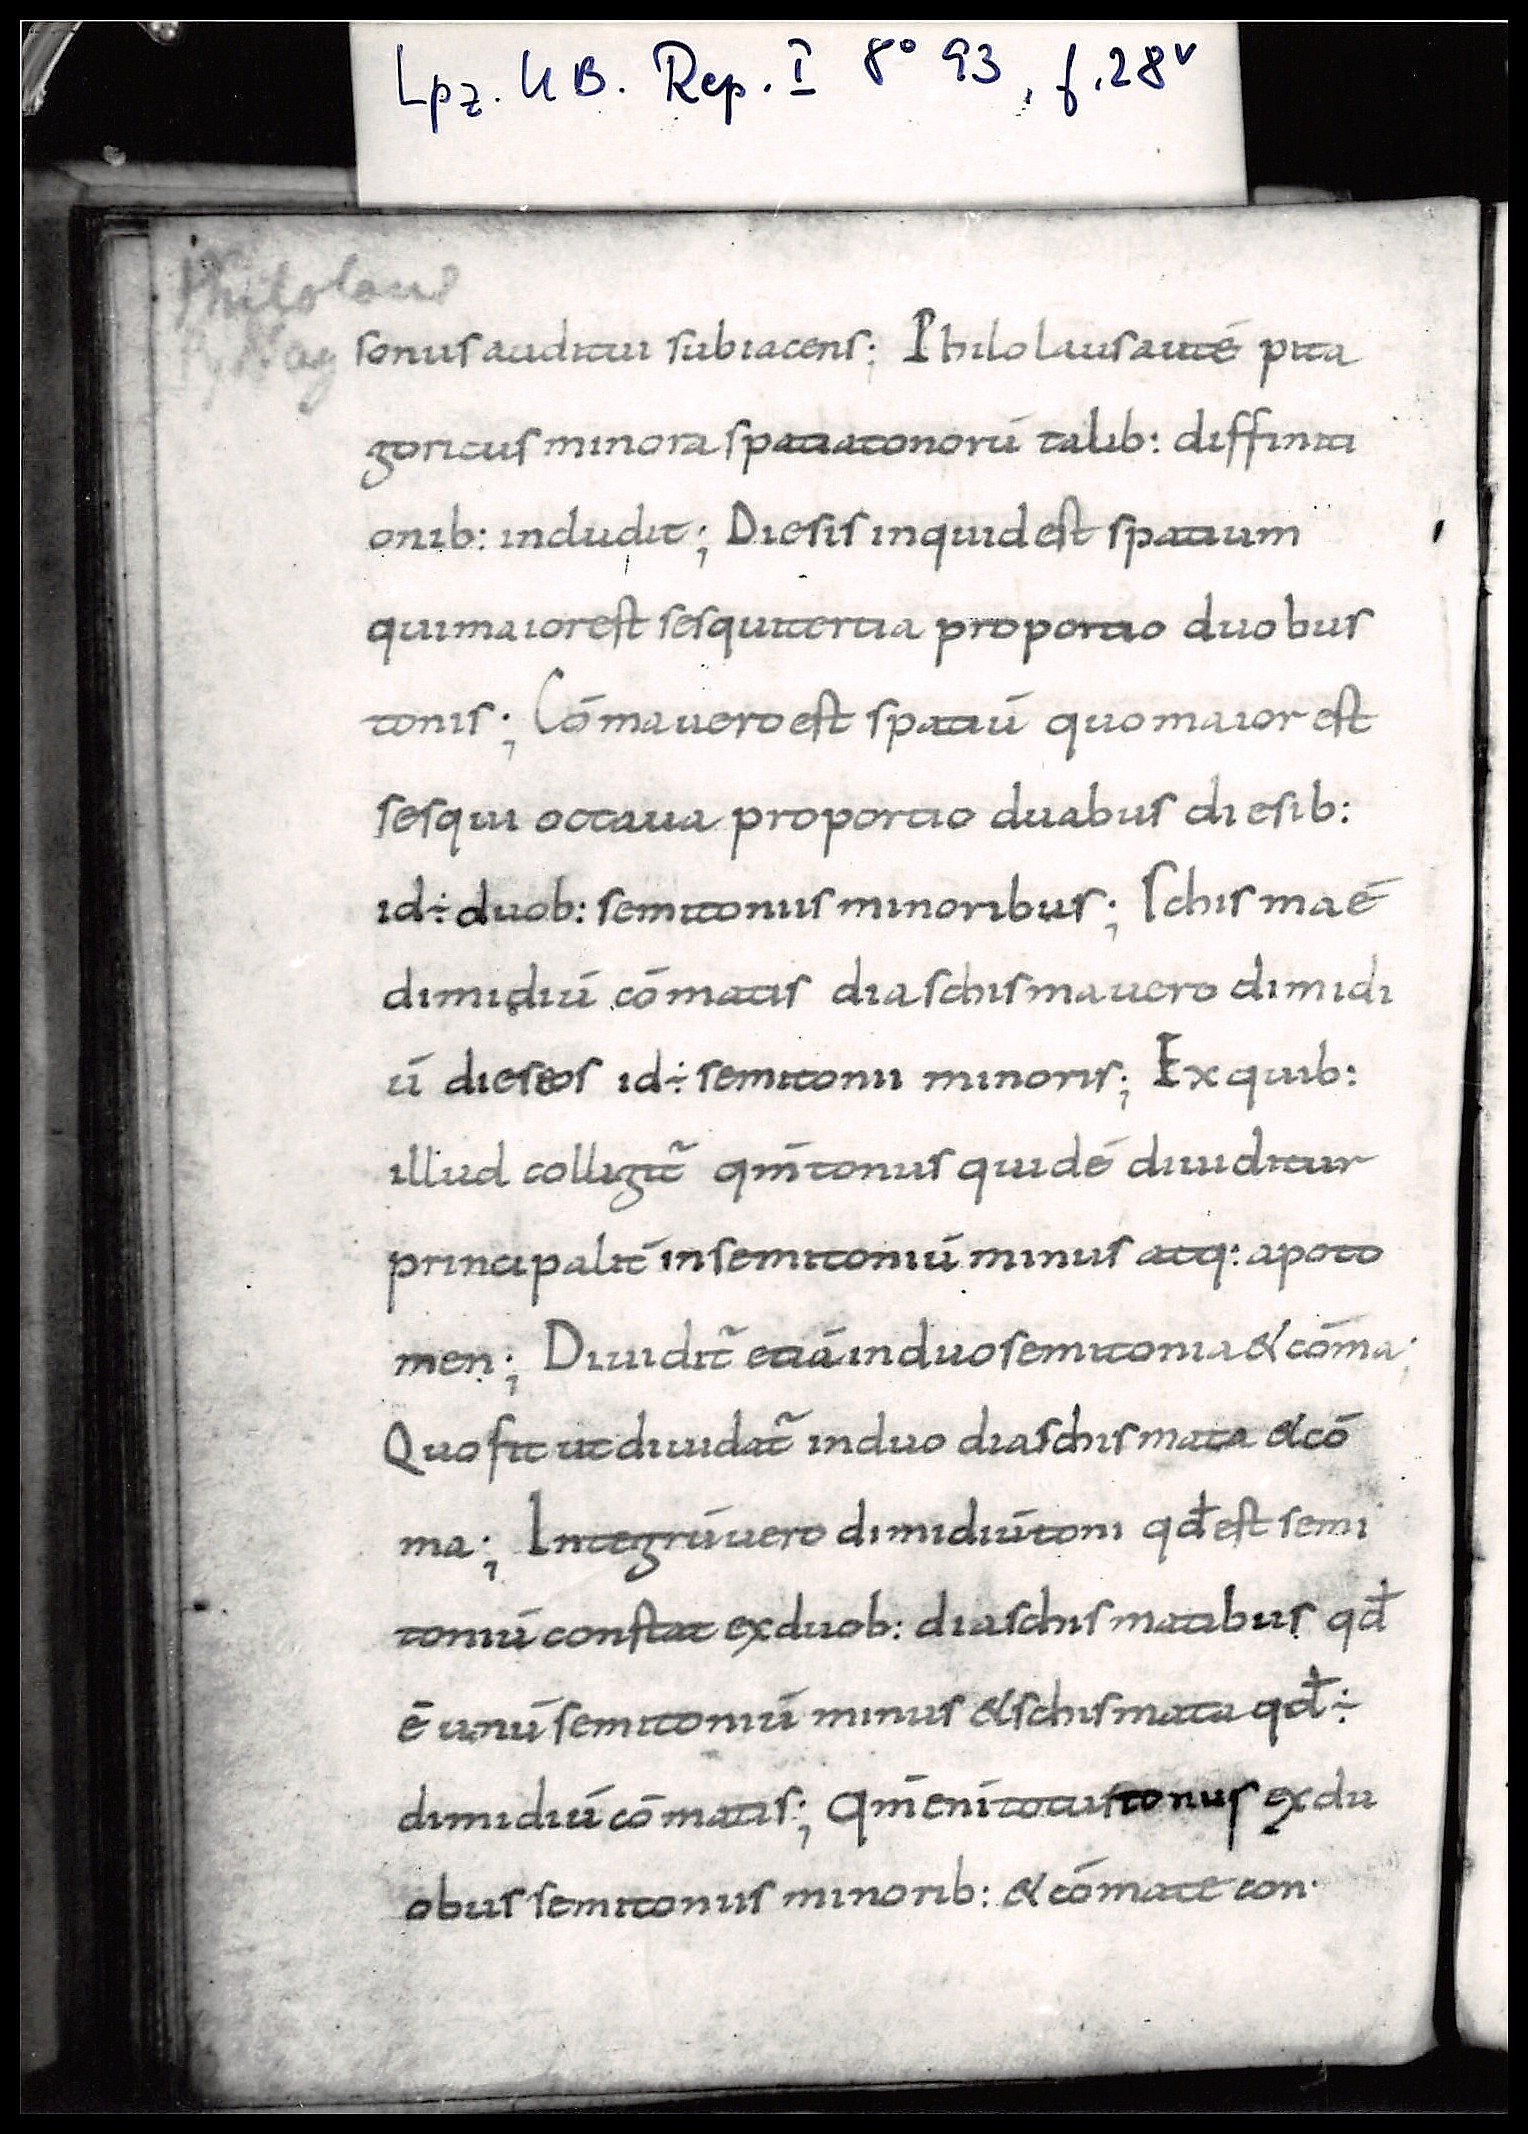 Lpz. UB. Rep. I 8° 93, f. 28v
Philolaus
sonus auditui subiacens; Philolaus auté pita
goricus minora spatia tonorū talib: diffiniti
onib: includit; Diesis inquid est spatium
qui maior est sesquitertia proportio duobus
tonis; Cōma uero est spatiū quo maior est
sesqui octaua proportio duabus diesib:
id÷ duob: semitoniis minoribus; Schisma é
dimidiū cōmatis diaschisma uero dimidi
ū dieseos id÷ semitonii minoris; Ex quib:
illud colligit̃ qm̄ tonus quidé diuiditur
principalit̄ in semitoniū minus atq: apoto
men; Diuidit̃ etiā in duo semitonia & cōma;
Quo fit ut diuidat̃ in duo diaschismata & cō
ma; Integrū uero dimidiū toni qđ est semi
toniū constat ex duob: diaschismatibus qđ
ē unū semitoniū minus & schismata qđ÷
dimidiū cōmatis; Qm̄ eni totus tonus ex du
obus semitoniis minorib: & cōmate con